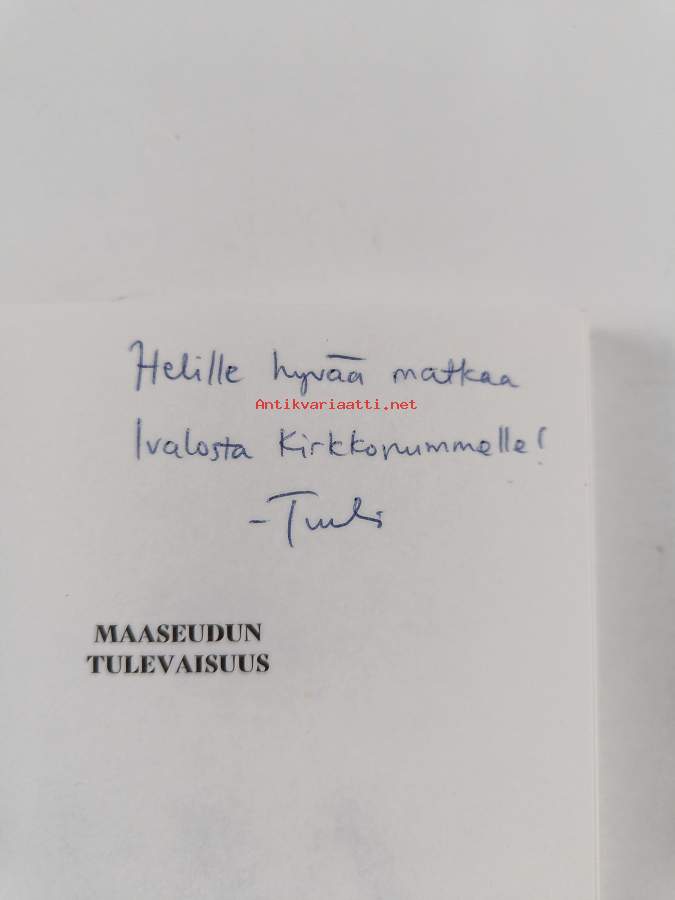 Helille hyvää matkaa
Antikvariaatti.net
Ivalosta Kirkkonummelle!
-Tuuli
MAASEUDUN
TULEVAISUUS